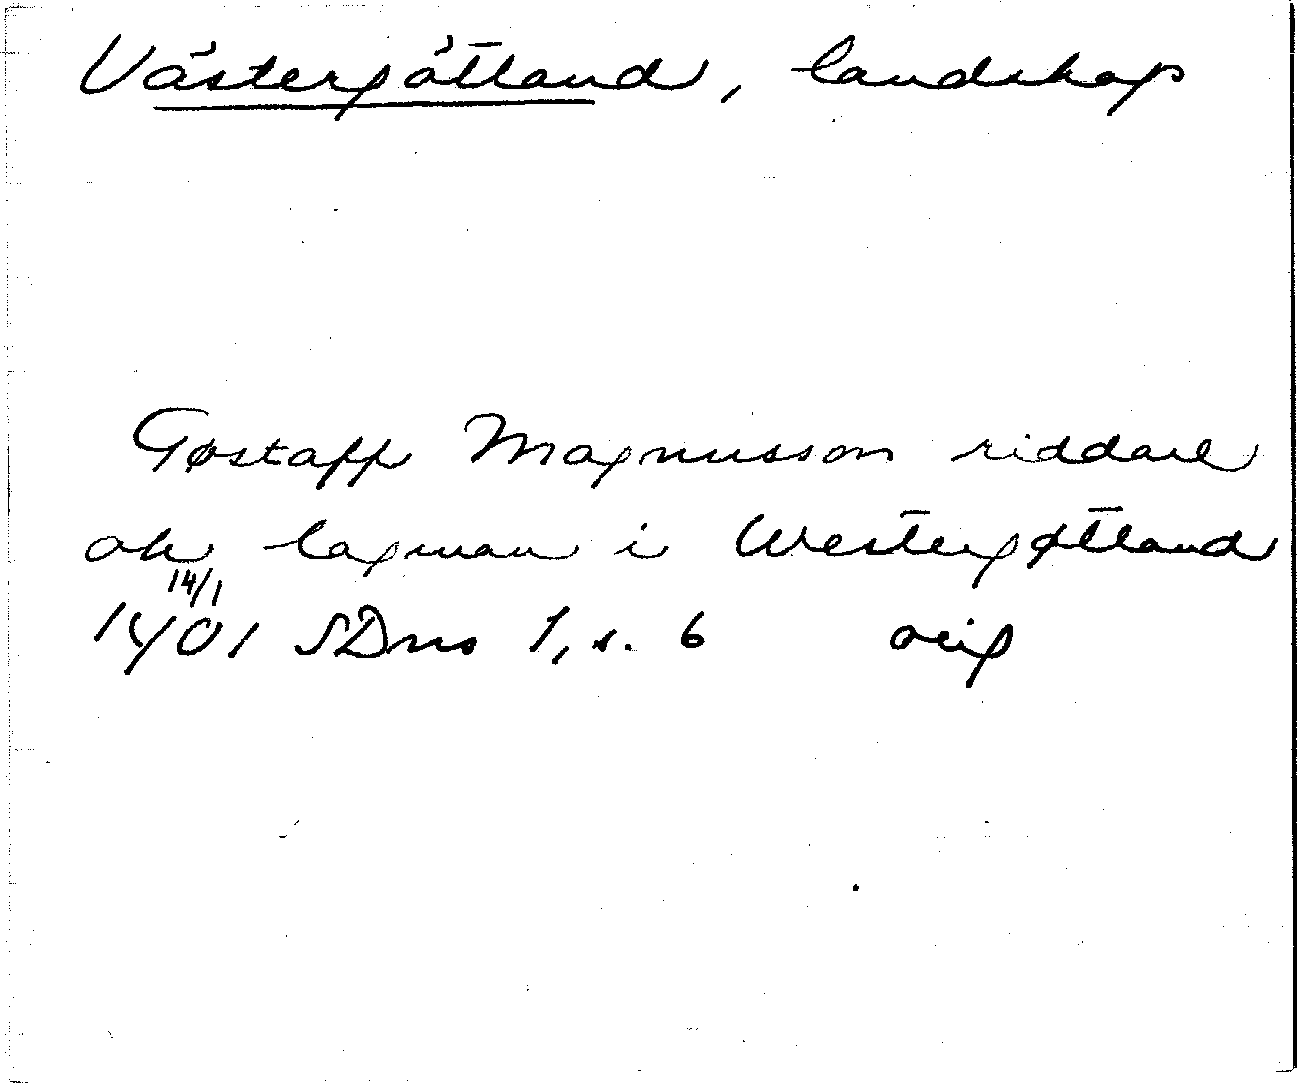 Västergötland, landskap
Gøstaff Magnusson riddare
ok lagman i Westergøtland
14/1
1401 SDns 1, s. 6 orig